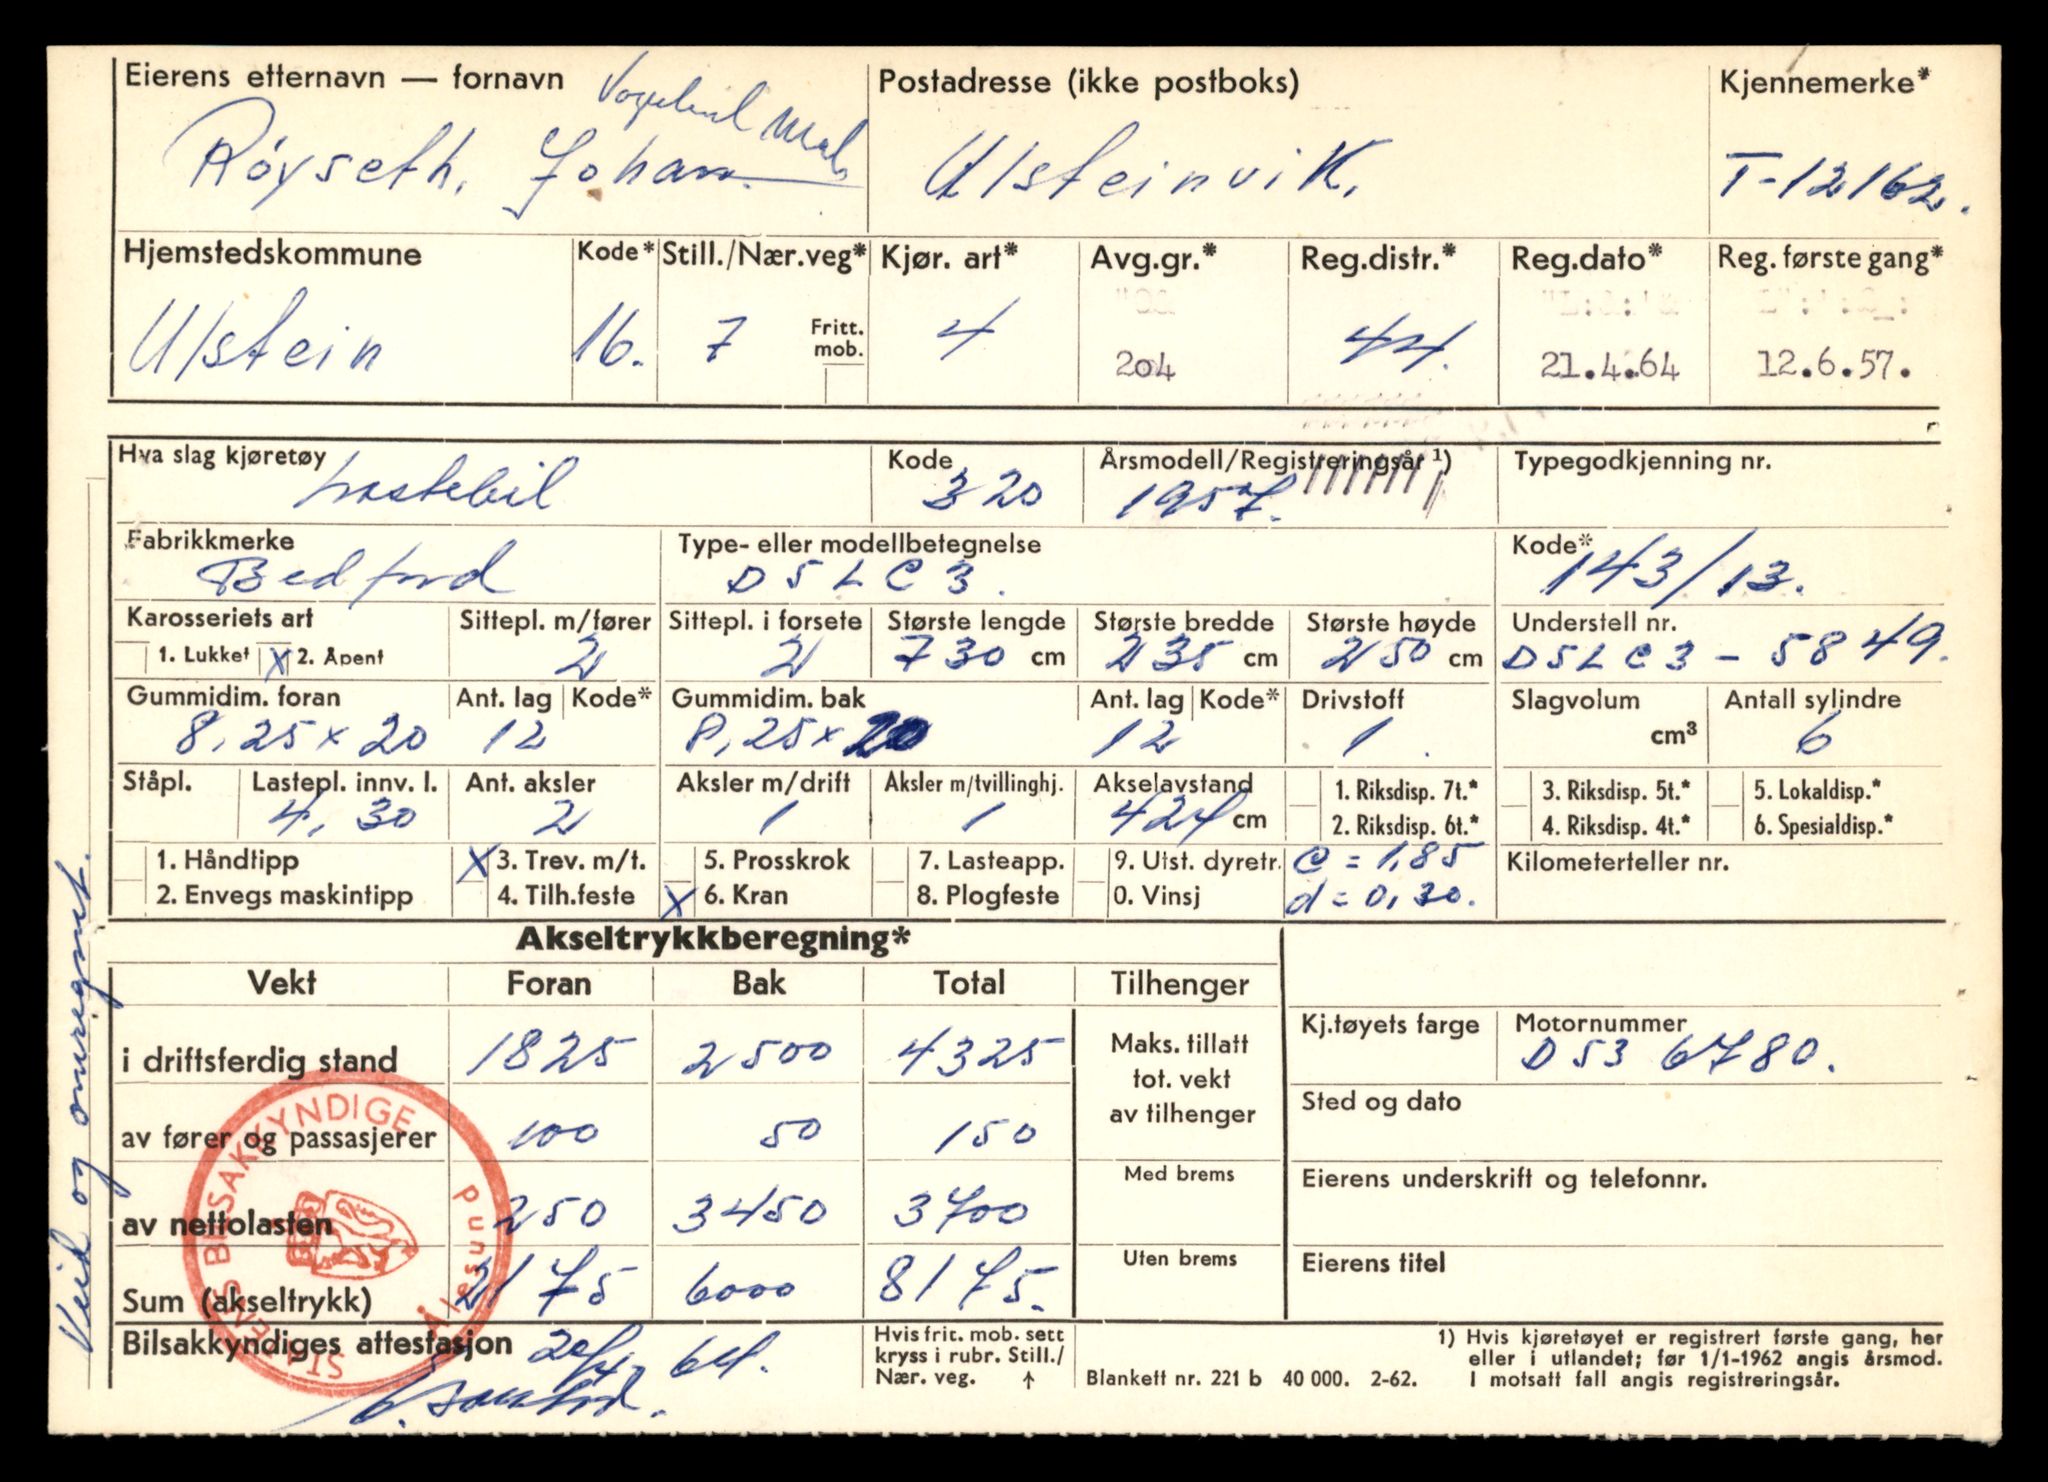 Eierens etternavn — fornavn
Røyseth, Johan
Postadresse (ikke postboks)
Ulsteinvik.
Kjennemerke*
T-12162.
Hjemstedskommune
Ulstein
Kode*
16.
Still./Nær.veg*
7
Fritt.
mob.
Kjør. art*
4
Avg.gr.*
204
Reg.distr.*
44.
Reg.dato*
21.4.64
Reg. første gang*
12.6.57.
Hva slag kjøretøy
Lastebil
Kode
320
Årsmodell/Registreringsår ¹)
1957.
Typegodkjenning nr.
Fabrikkmerke
Bedford
Type- eller modellbetegnelse
D5LC3.
Kode*
143/13.
Karosseriets art
1. Lukket X 2. Åpent
Sittepl. m/fører
2
Sittepl. i forsete
2
Største lengde
730 cm
Største bredde
235 cm
Største høyde
250 cm
Understell nr.
D5LC3 - 5849.
Gummidim. foran
8,25 x 20
Ant. lag
12
Kode*
Gummidim. bak
8,25 x 20
Ant. lag
12
Kode*
Drivstoff
1.
Slagvolum
cm³
Antall sylindre
6
Ståpl.
Lastepl. innv. l.
4,30
Ant. aksler
2
Aksler m/drift
1
Aksler m/tvillinghj.
1
Akselavstand
424 cm
1. Riksdisp. 7t.*
2. Riksdisp. 6t.*
3. Riksdisp. 5t.*
4. Riksdisp. 4t.*
5. Lokaldisp.*
6. Spesialdisp.*
1. Håndtipp
2. Envegs maskintipp
X 3. Trev. m/t.
4. Tilh.feste
5. Prosskrok
X 6. Kran
7. Lasteapp.
8. Plogfeste
9. Utst. dyretr.
0. Vinsj
c = 1,85
d = 0,30.
Kilometerteller nr.
Akseltrykkberegning*
Vekt Foran Bak Total Tilhenger
i driftsferdig stand 1825 2500 4325
av fører og passasjerer 100 50 150
av nettolasten 250 3450 3700
Sum (akseltrykk) 2175 6000 8175.
Maks. tillatt
tot. vekt
av tilhenger
Med brems
Uten brems
Kj.tøyets farge
Motornummer
D53 6780.
Sted og dato
Eierens underskrift og telefonnr.
Eierens titel
Bilsakkyndiges attestasjon
STATENS BILSAKKYNDIGE
Ålesund
Hvis frit. mob. sett
kryss i rubr. Still./
Nær. veg. ↑
Blankett nr. 221 b 40 000. 2-62.
1) Hvis kjøretøyet er registrert første gang, her
eller i utlandet; før 1/1-1962 angis årsmod.
I motsatt fall angis registreringsår.
Veid og omregnet.